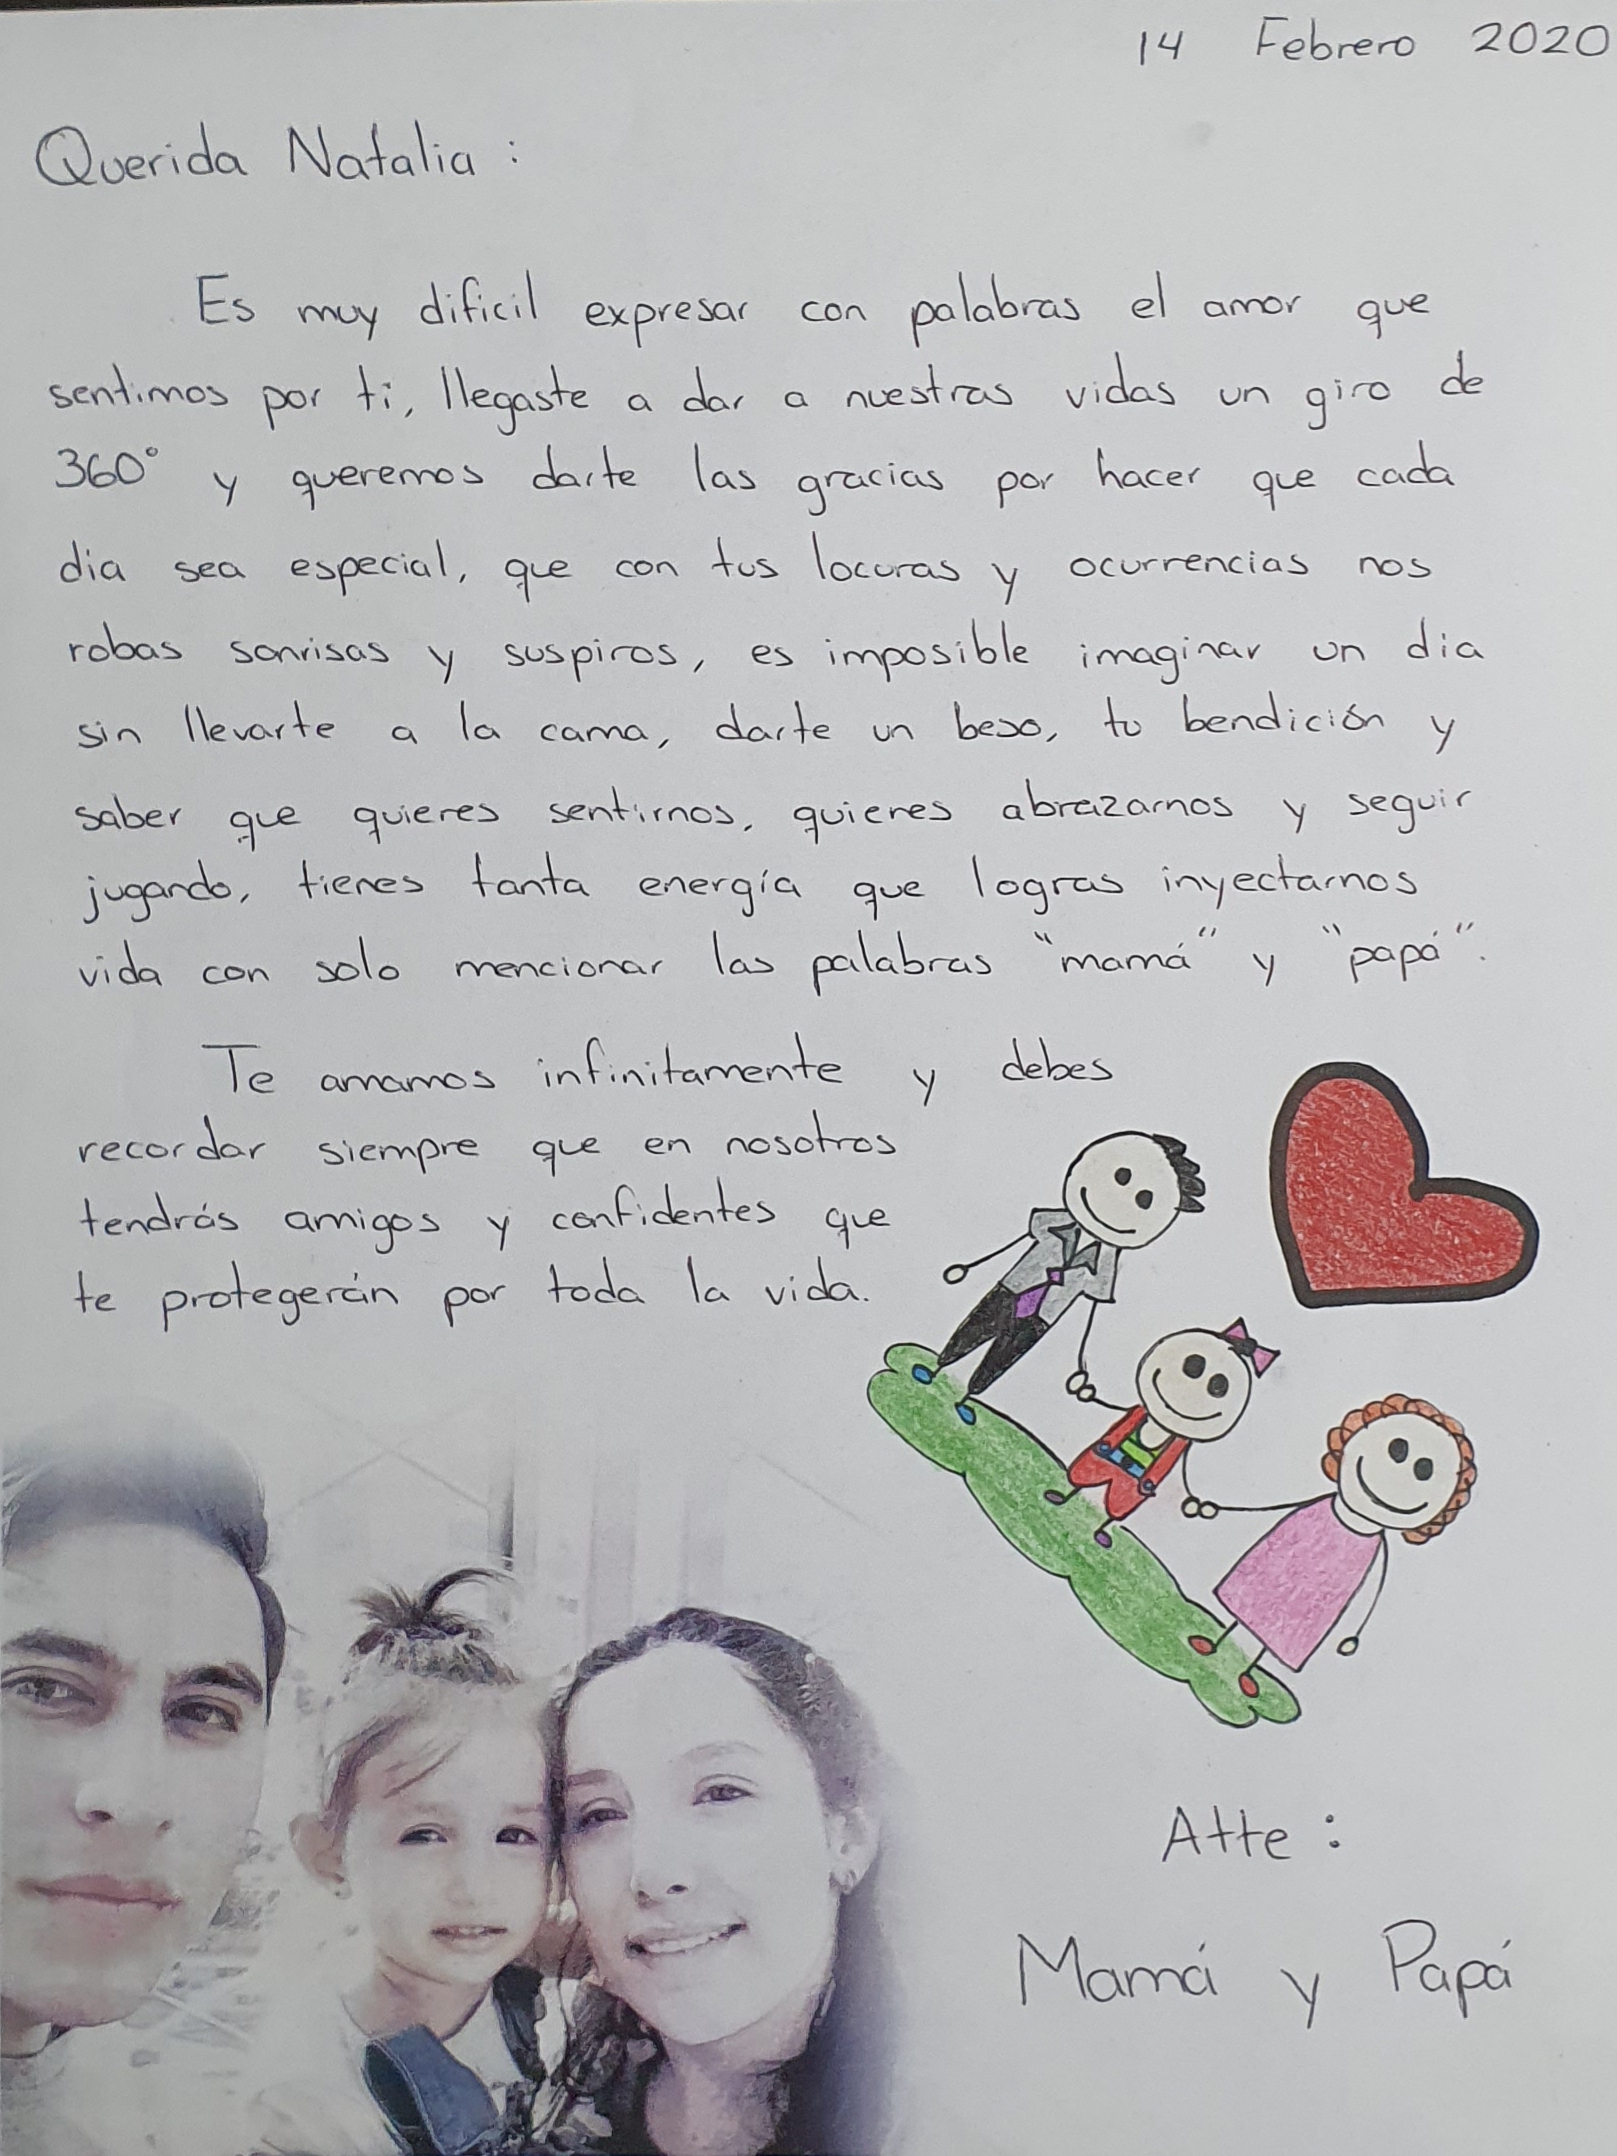 14 Febrero 2020
Querida Natalia :
Es muy dificil expresar con palabras el amor que
sentimos por ti, llegaste a dar a nuestras vidas un giro de
360° y queremos darte las gracias por hacer que cada
dia sea especial, que con tus locuras y ocurrencias nos
robas sonrisas y suspiros, es imposible imaginar un dia
sin llevarte a la cama, darte un beso, tu bendición y
saber que quieres sentirnos, quieres abrazarnos y seguir
jugando, tienes tanta energía que logras inyectarnos
vida con solo mencionar las palabras "mamá" y "papá".
Te amamos infinitamente y debes
recordar siempre que en nosotros
tendrás amigos y confidentes que
te protegerán por toda la vida.
Atte :
Mamá y Papá